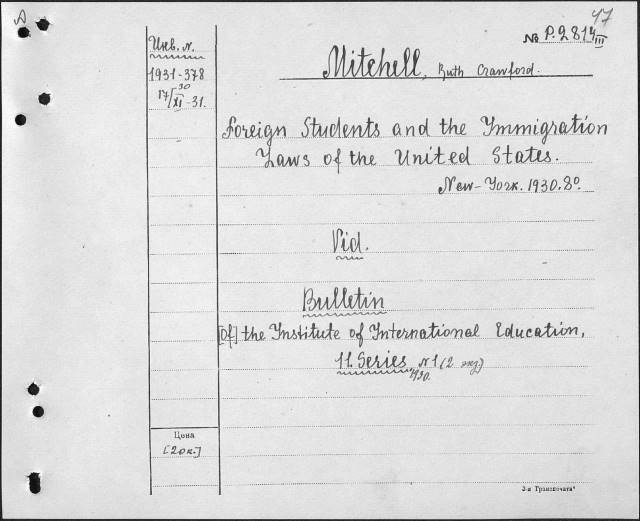 A
47
Инв. N.
1931-378
17/XI-31.
30
№ P.2814
III
Mitchell, Ruth Crawford.
Foreign Students and the Immigration
Laws of the United States.
New-York. 1930. 8°.
Vid.
Bulletin
[of] the Institute of International Education,
11. Series, N1 (2 экз)
1930.
Цена
[20к.]
3-я Транспечать